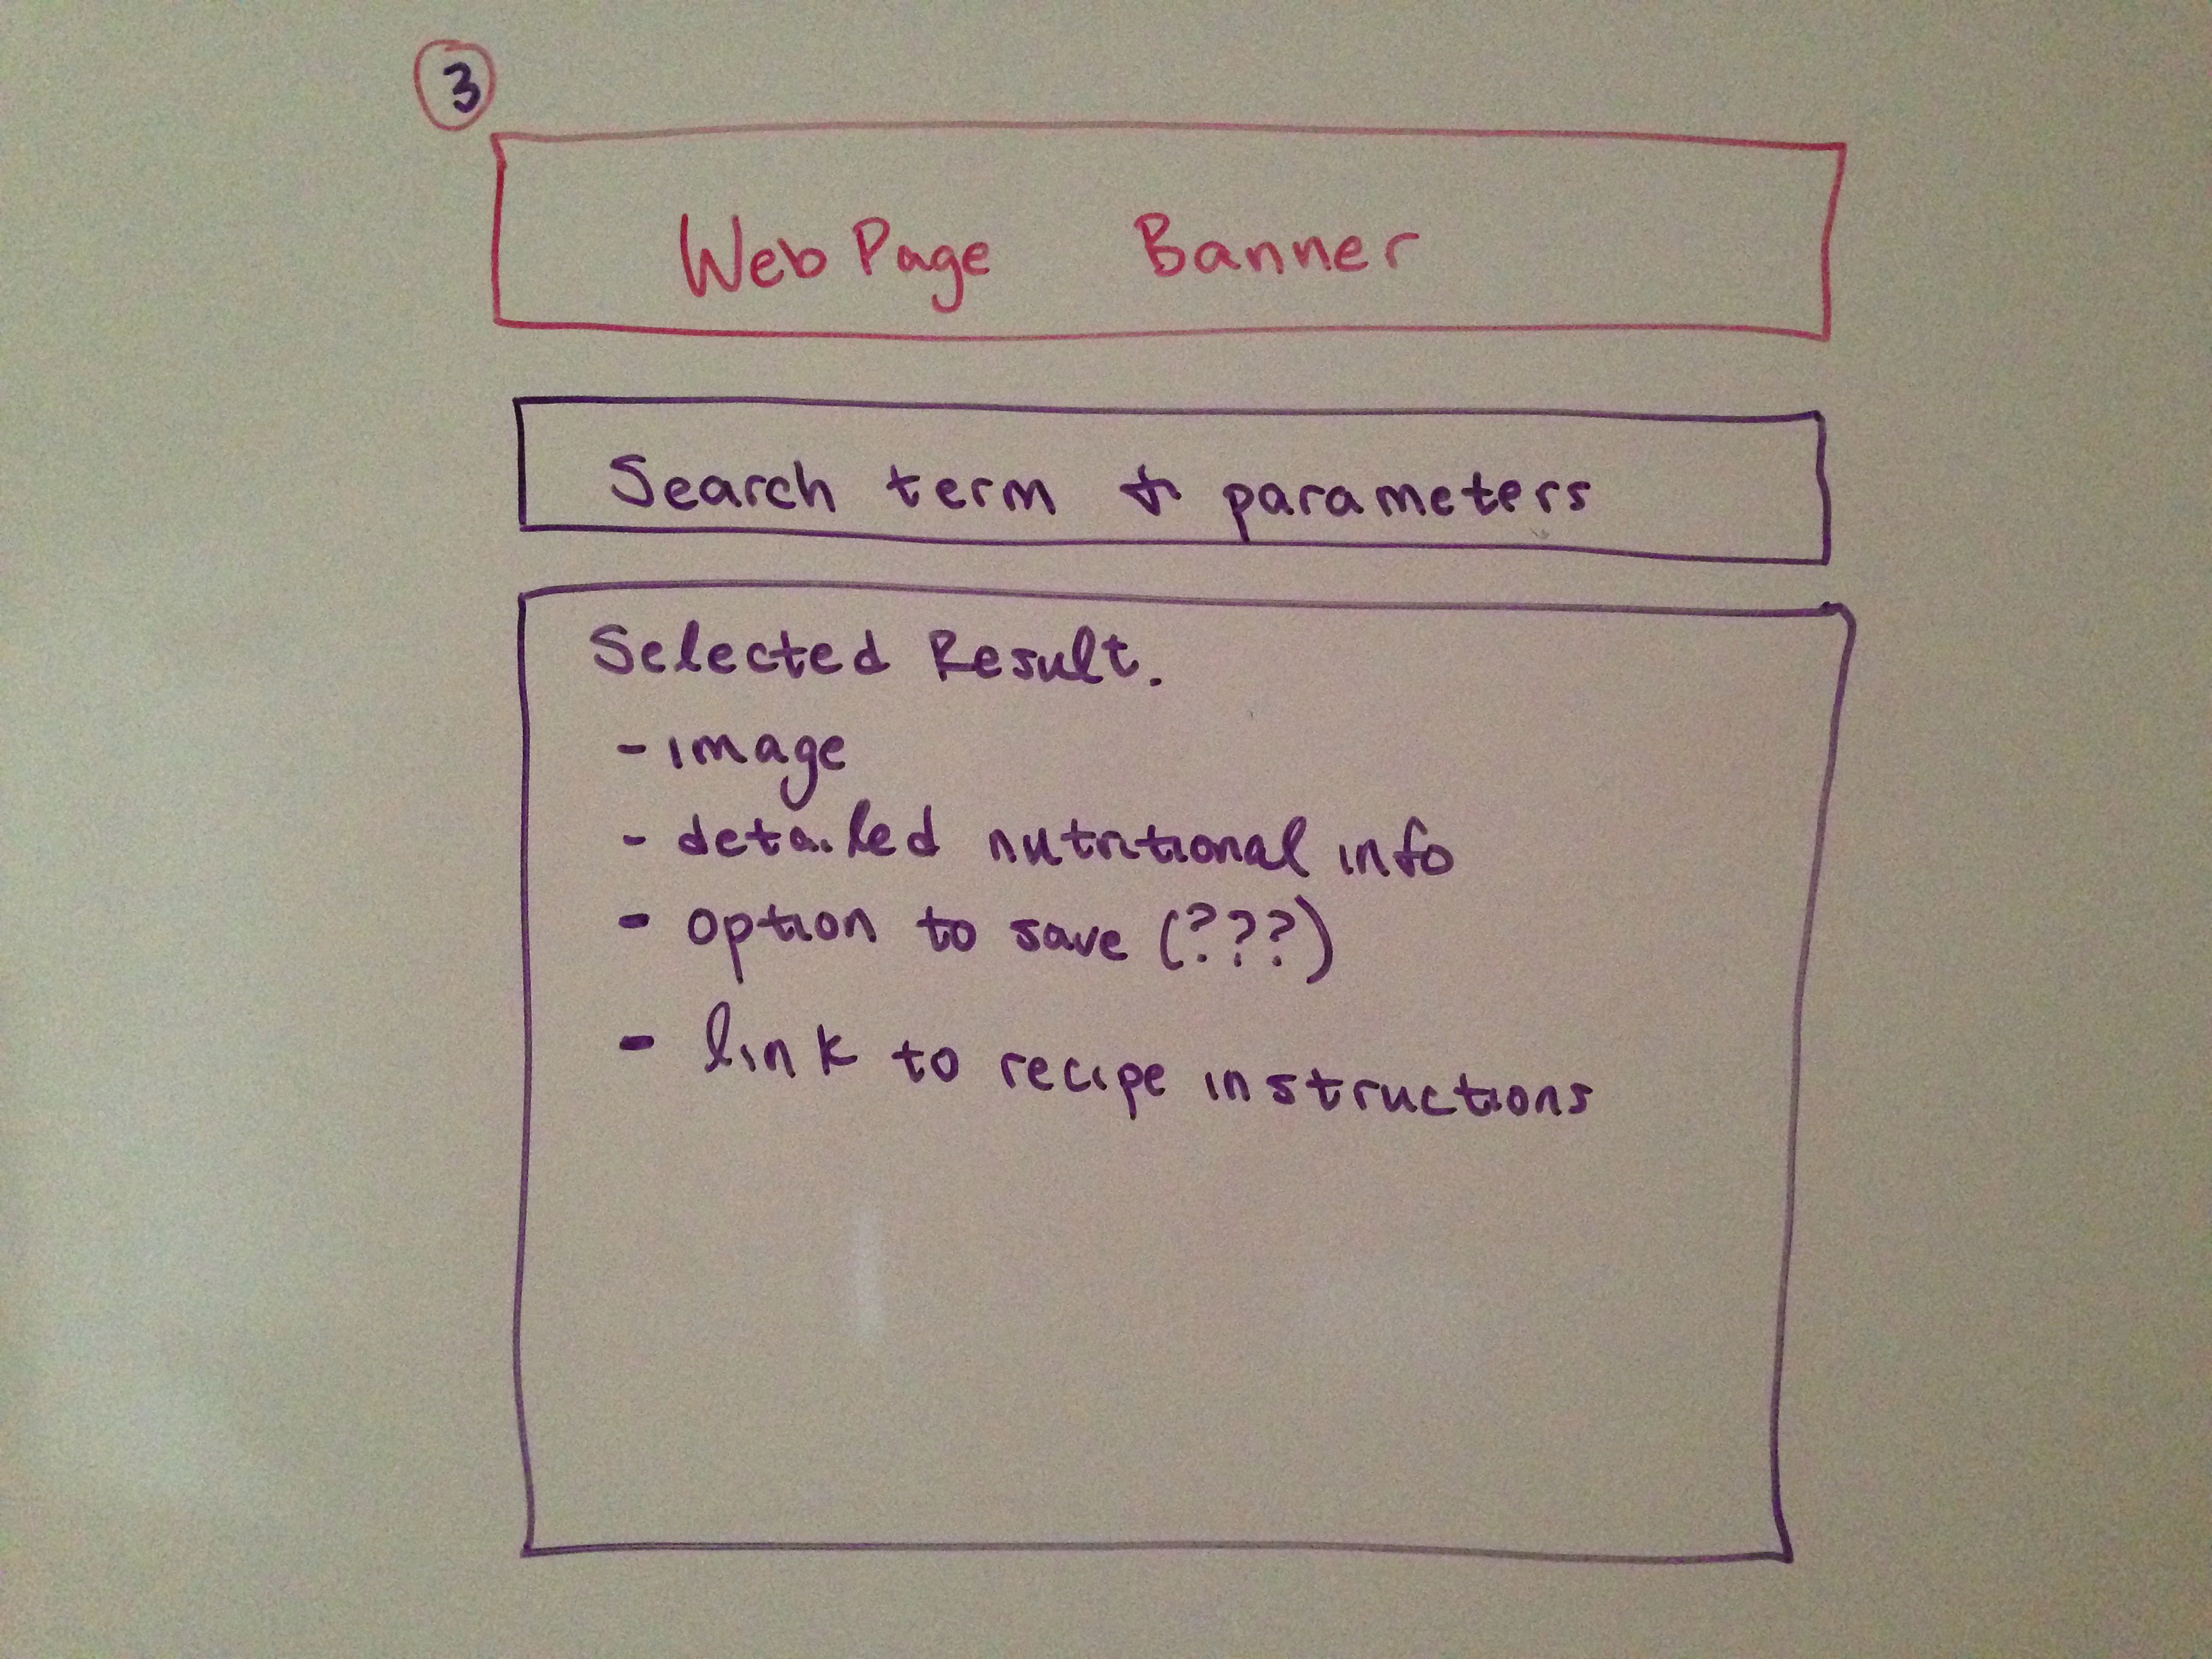 3
Web Page Banner
Search term & parameters
Selected Result.
- image
- detailed nutritional info
- option to save (???)
- link to recipe instructions